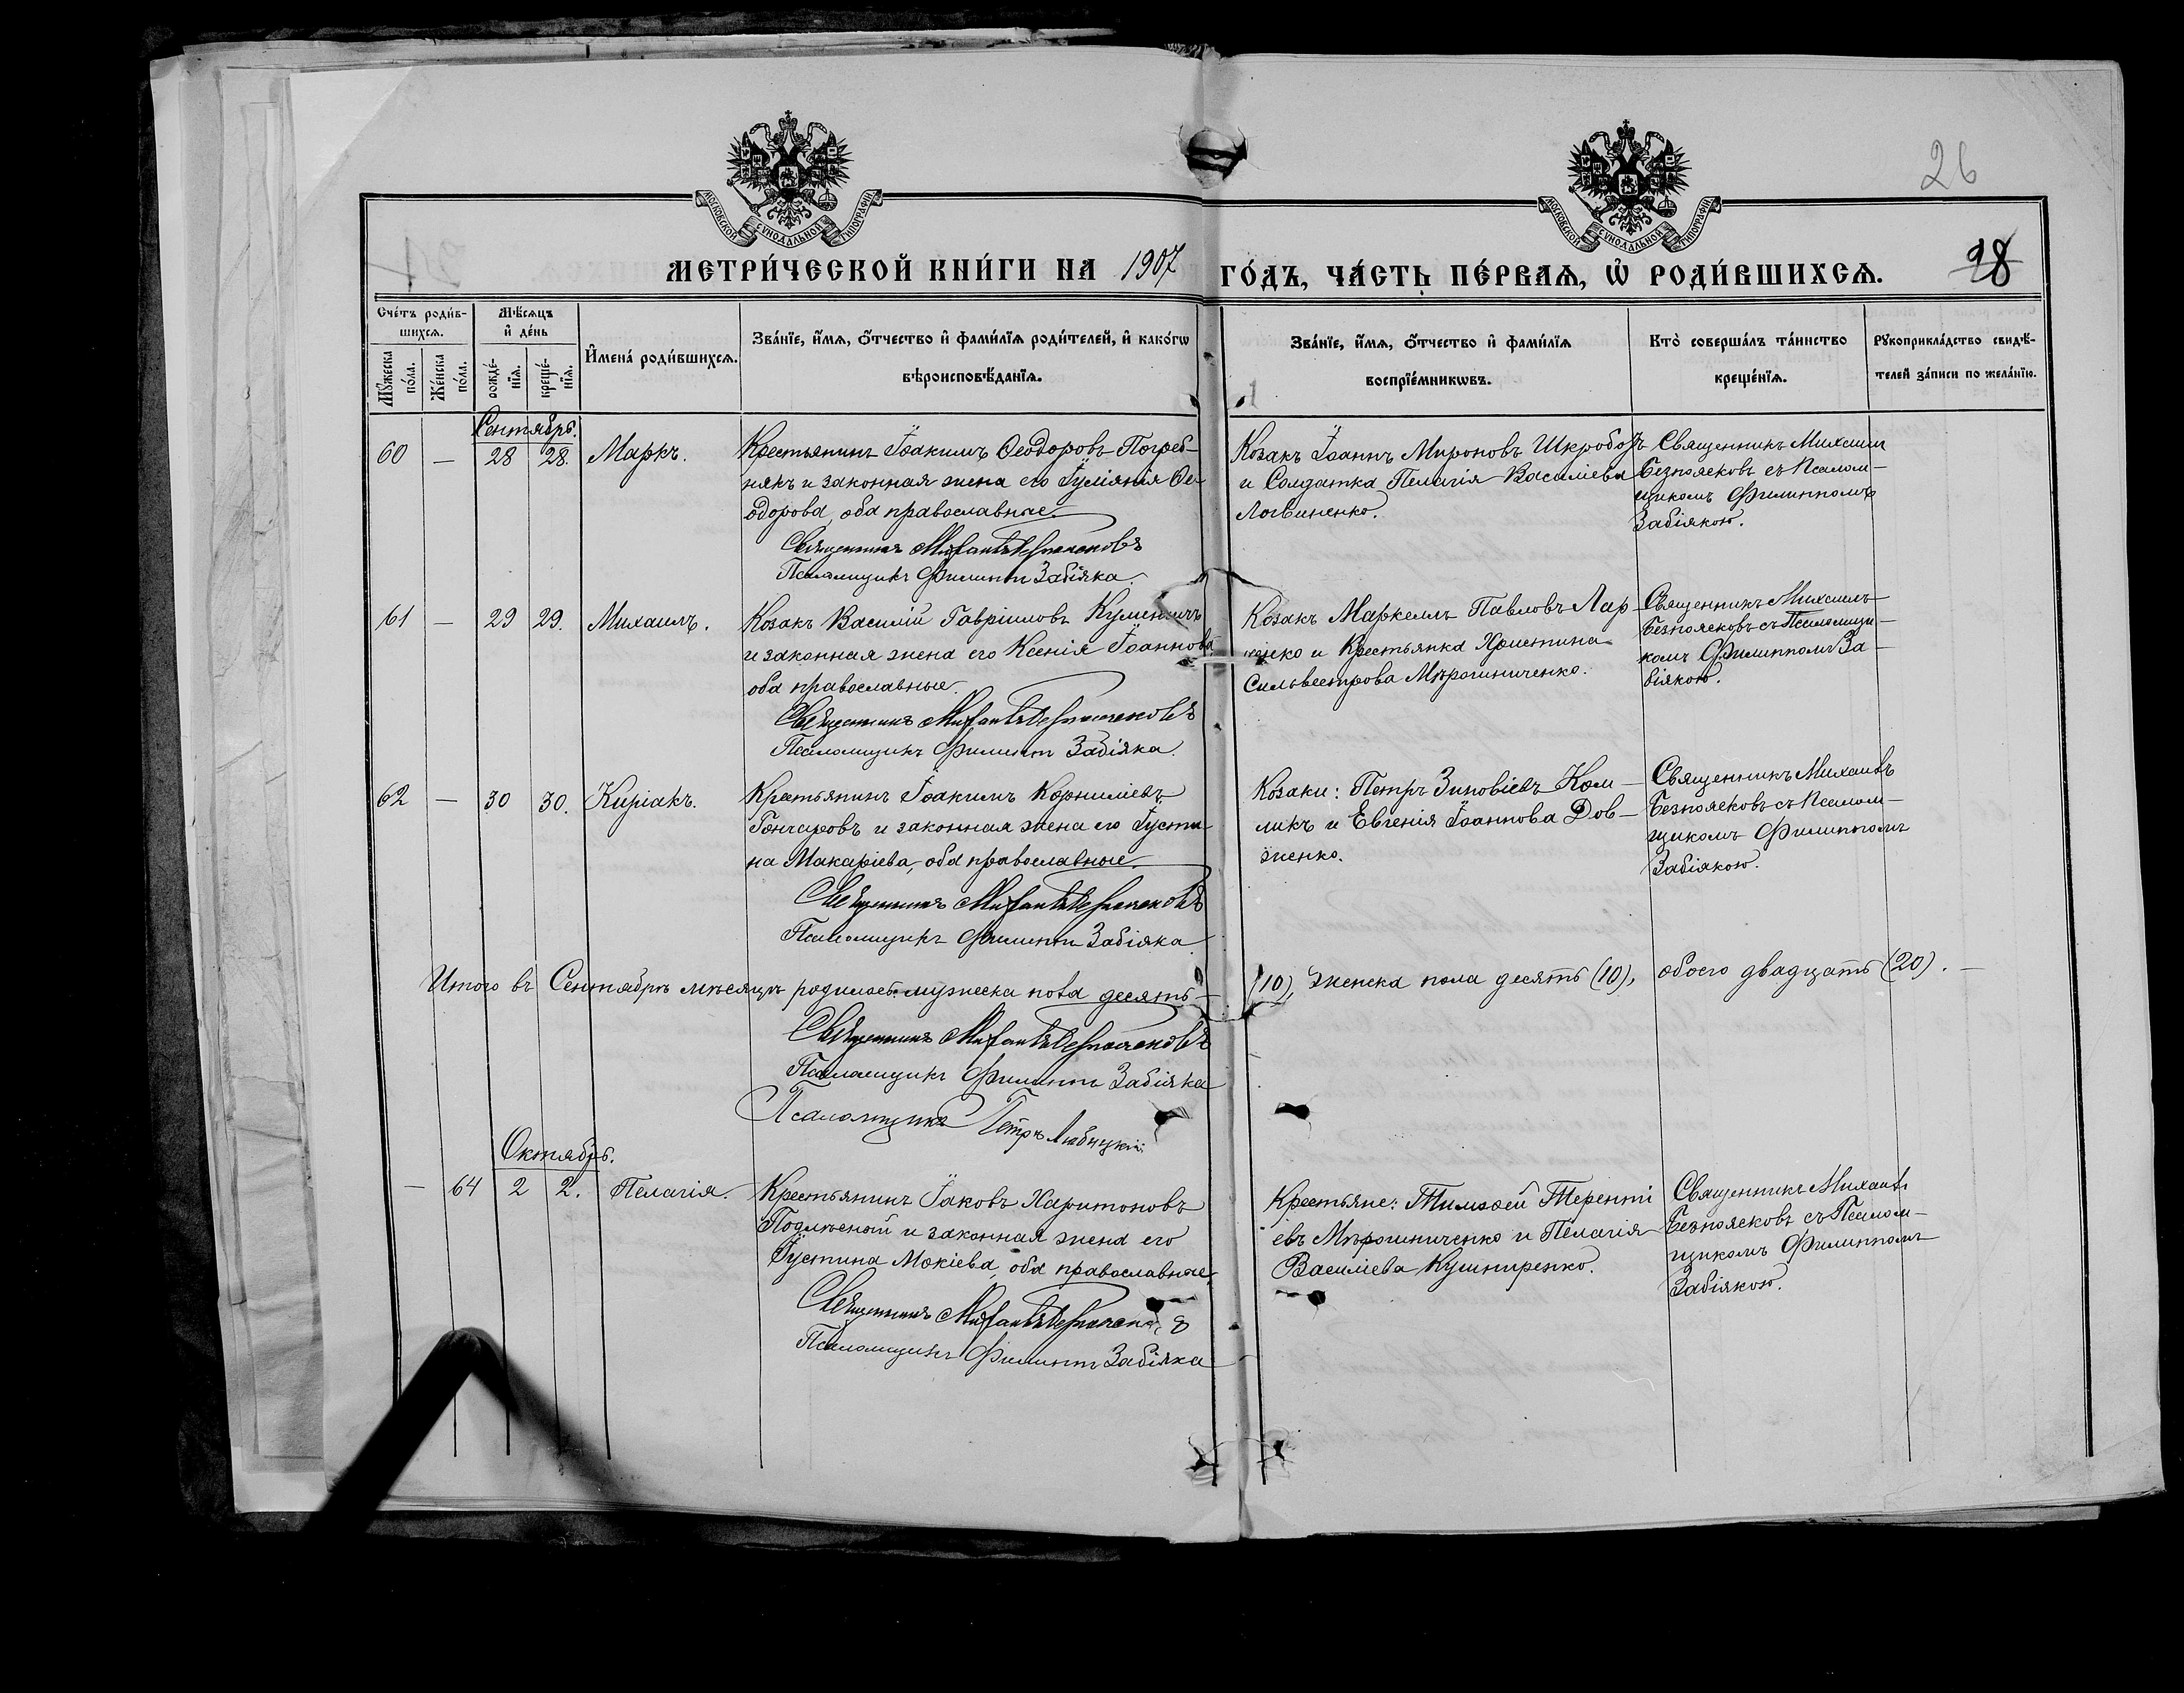 26
МОСКОВСКОЙ СУНОДАЛЬНОЙ ТИПОГРАФІИ
МОСКОВСКОЙ СУНОДАЛЬНОЙ ТИПОГРАФІИ
МЕТРИ́ЧЕСКОЙ КНИ́ГИ НА 1907 ГО́ДЪ, ЧА́СТЬ ПЕ́РВАѦ, Ѡ҆ РОДИ́ВШИХСѦ. 28
Сче́тъ роди́в-
шихсѧ.
Мꙋ́жеска
по́ла.
Же́нска
по́ла.
Мѣ́сѧцъ
и҆ де́нь
рожде́-
нїѧ.
креще́-
нїѧ.
И҆мена̀ роди́вшихсѧ.
Зва́нїе, и҆́мѧ, ѻ҆́тчество и҆ фами́лїѧ роди́телей, и҆ како́гѡ
вѣроисповѣ́данїѧ.
Зва́нїе, и҆́мѧ, ѻ҆́тчество и҆ фами́лїѧ
воспрїе́мникѡвъ.
Кто̀ соверша́лъ та́инство
креще́нїѧ.
Рꙋкоприкла́дство свидѣ́-
телей за́писи по жела́нїю.
Сентябрь.
60 — 28 28. Маркъ.
Крестьянинъ Іоакимъ Ѳеодоровъ Погреб-
някъ и законная жена его Іуліянія Ѳе-
одорова, оба православные.
Священникъ Михаилъ Безпоясковъ
Псаломщикъ Филиппъ Забіяка.
Козакъ Іоаннъ Мироновъ Шкроботъ
и Солдатка Пелагія Василіева
Логвиненко.
Священникъ Михаилъ
Безпоясковъ съ Псалом-
щикомъ Филиппомъ
Забіякою.
61 — 29 29. Михаилъ.
Козакъ Василій Гавріиловъ
и законная жена его Ксенія Іоаннова
оба православные.
Священникъ Михаилъ Безпоясковъ
Псаломщикъ Филиппъ Забіяка.
Козакъ Маркеллъ Павловъ Лар-
ченко и Крестьянка Христина
Сильвестрова Мѣрошниченко.
Священникъ Михаилъ
Безпоясковъ съ Псаломщи-
комъ Филиппомъ За-
біякою.
62 — 30 30. Киріакъ.
Крестьянинъ Іоакимъ Корниліевъ
Гончаровъ и законная жена его Іусти-
на Макаріева, оба православные.
Священникъ Михаилъ Безпоясковъ
Псаломщикъ Филиппъ Забіяка
Козаки: Петръ Зиновіевъ Ком-
ликъ и Евгенія Іоаннова Дов-
женко.
Священникъ Михаилъ
Безпоясковъ съ Псалом-
щикомъ Филиппомъ
Забіякою.
Итого въ Сентябрѣ мѣсяцѣ родилось: мужеска пола десять (10), женска пола десять (10), обоего двадцать (20). —
Священникъ Михаилъ Безпоясковъ
Псаломщикъ Филиппъ Забіяка
Псаломщикъ Петръ
Октябрь.
— 64 2 2. Пелагія.
Крестьянинъ Іаковъ Харитоновъ
Подлѣсный и законная жена его
Іустина Мокіева, оба православные,
Священникъ Михаилъ Безпоясковъ
Псаломщикъ Филиппъ Забіяка
Крестьяне: Тимоѳей Терентi
евъ Мѣрошниченко и Пелагія
Василіева Кушниренко.
Священникъ Михаилъ
Безпоясковъ съ Псалом-
щикомъ Филиппомъ
Забіякою.